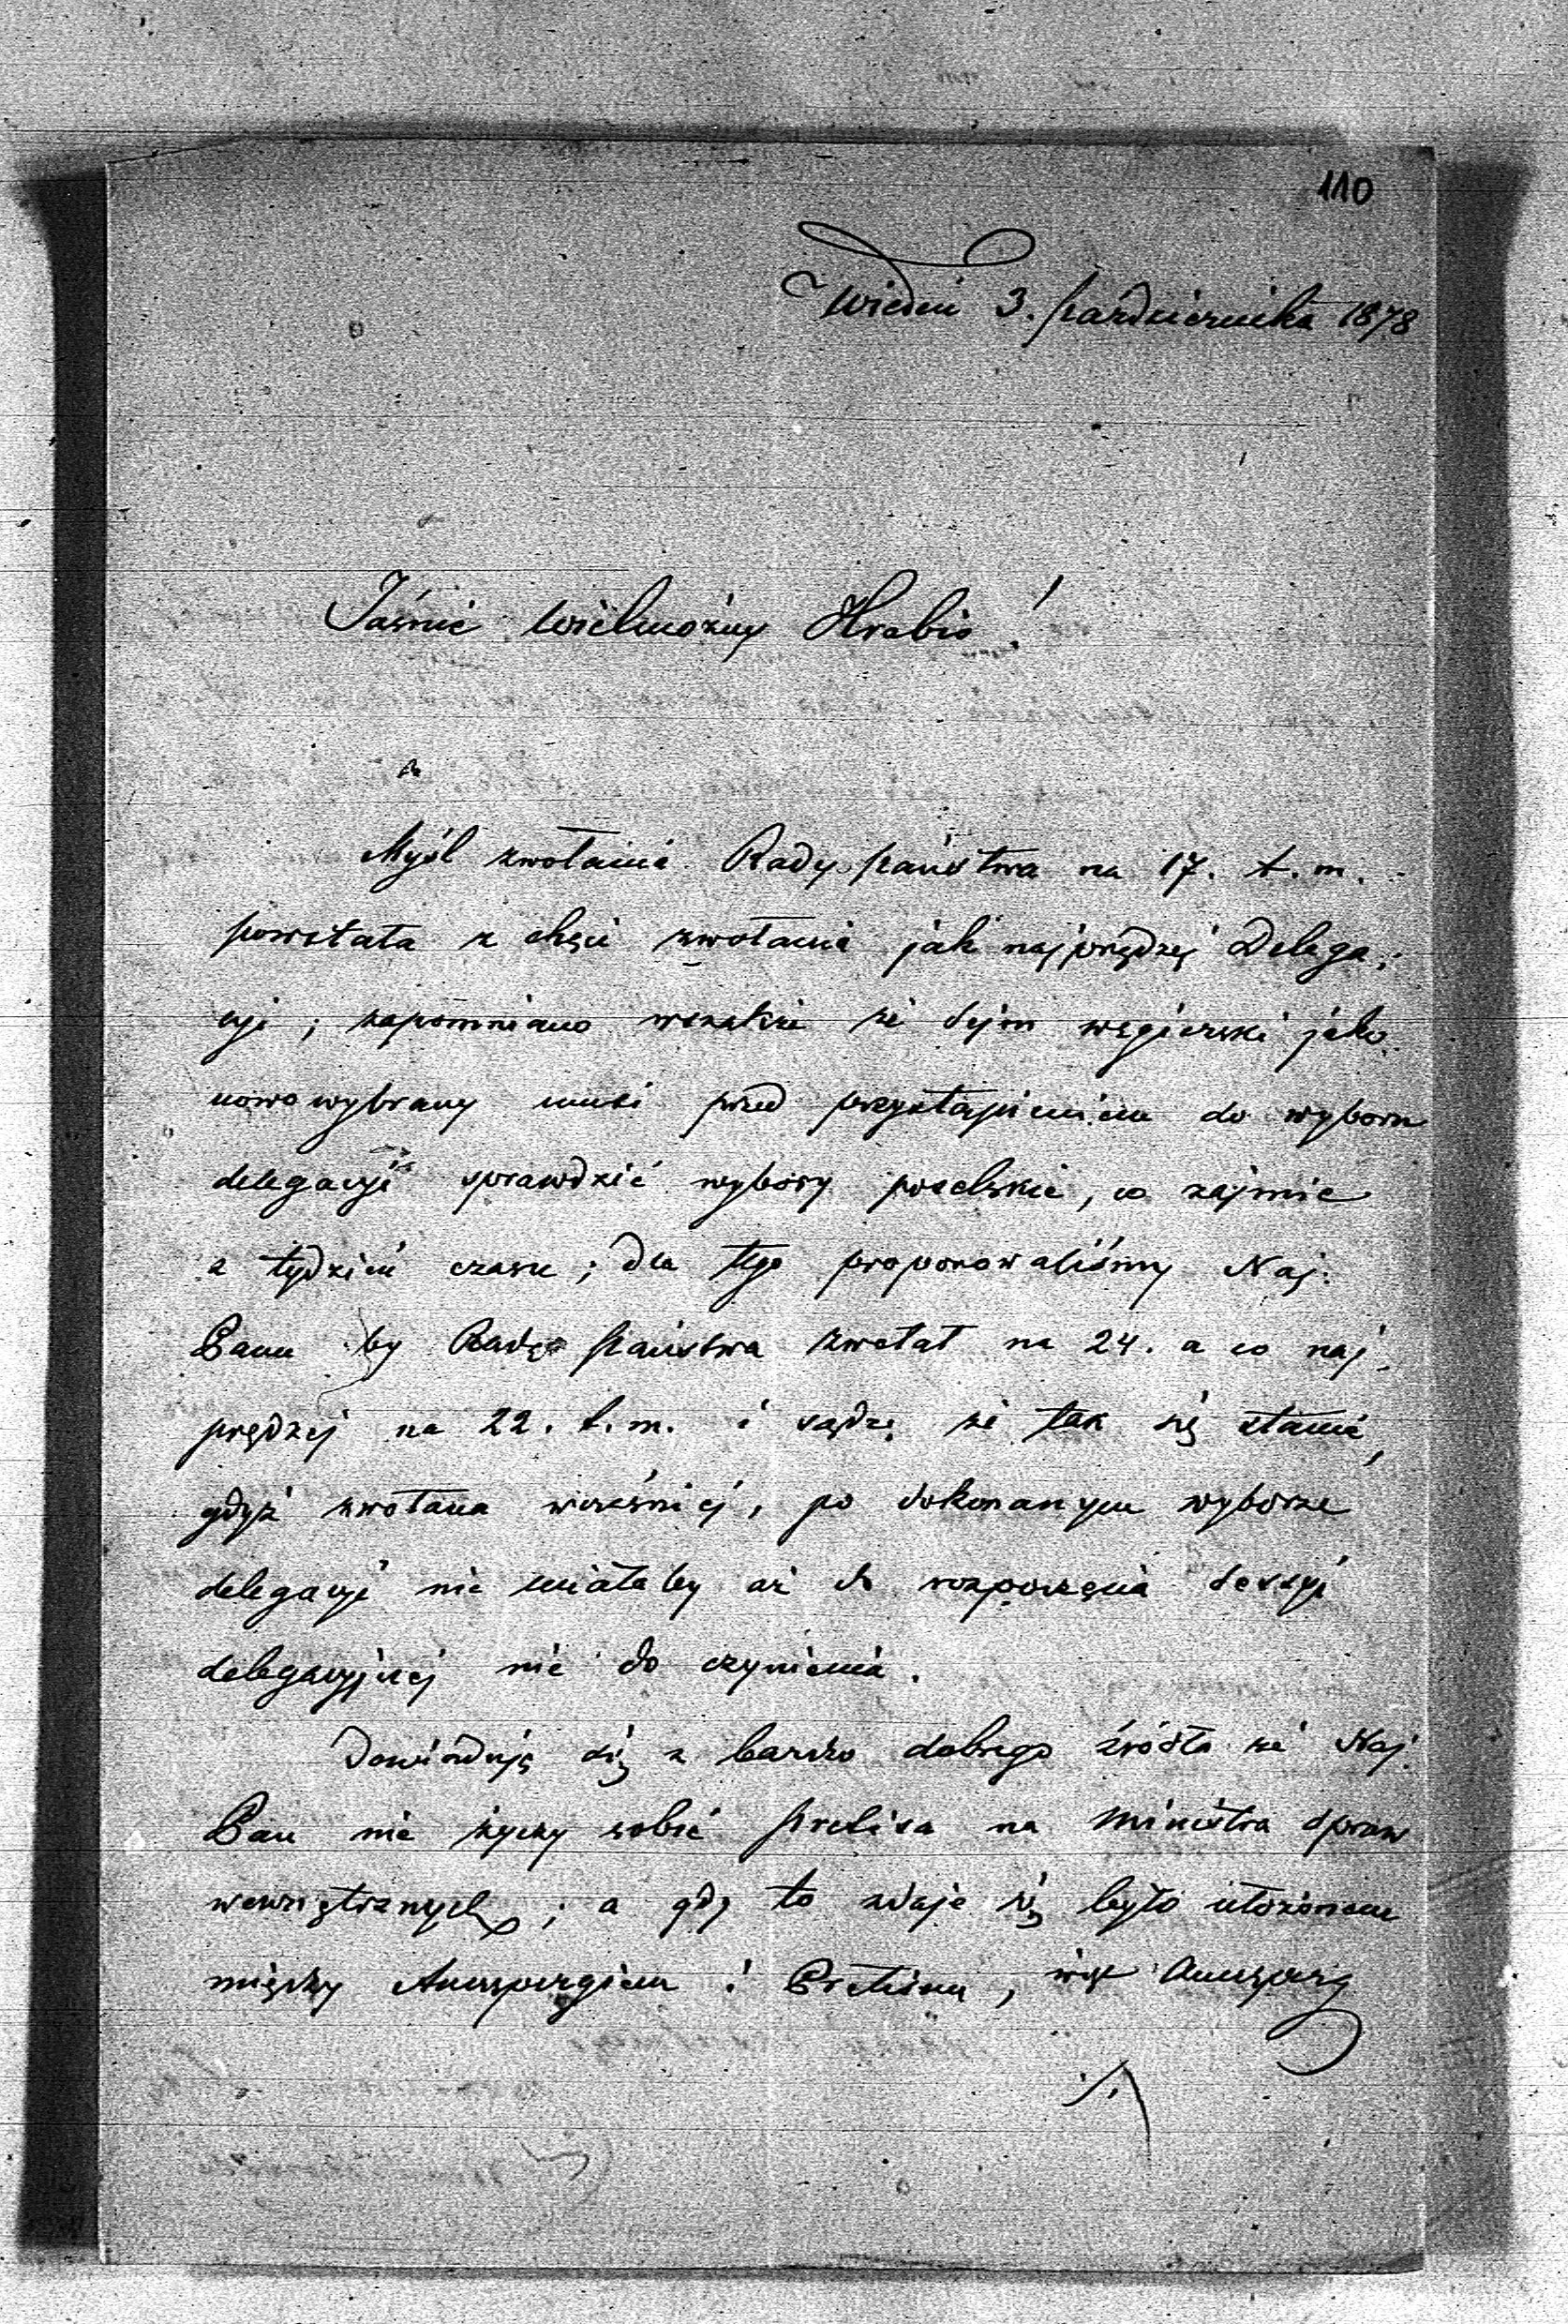 110
Wiedeń 3. października 1878
Jaśnie Wielmożny Hrabio!
Myśl zwołania Rady państwa na 17. t. m.
powstała z chęci zwołania jak najprędzej Delega-
cyi; zapomniano wszakże że sejm węgierski jako
nowo wybrany musi przed przystąpieniem do wyboru
delegacyi sprawdzić wybory poselskie, co zajmie
z tydzień czasu; dla tego proponowaliśmy Naj.
Panu by Radę państwa zwołał na 24. a co naj-
prędzej na 22. t. m. i sądzę że tak się stanie,
gdyż zwołana wcześniej, po dokonanym wyborze
delegacyi nie miałaby aż do rozpoczęcia sessyi
delegacyjnej nic do czynienia.
Dowiaduję się z bardzo dobrego źródła że Naj.
Pan nie życzy sobie Pretisa na Ministra spraw
wewnętrznych; a gdy to zdaje się było ułożonem
między Auerspergiem i Pretisem, więc Auersperg
./.